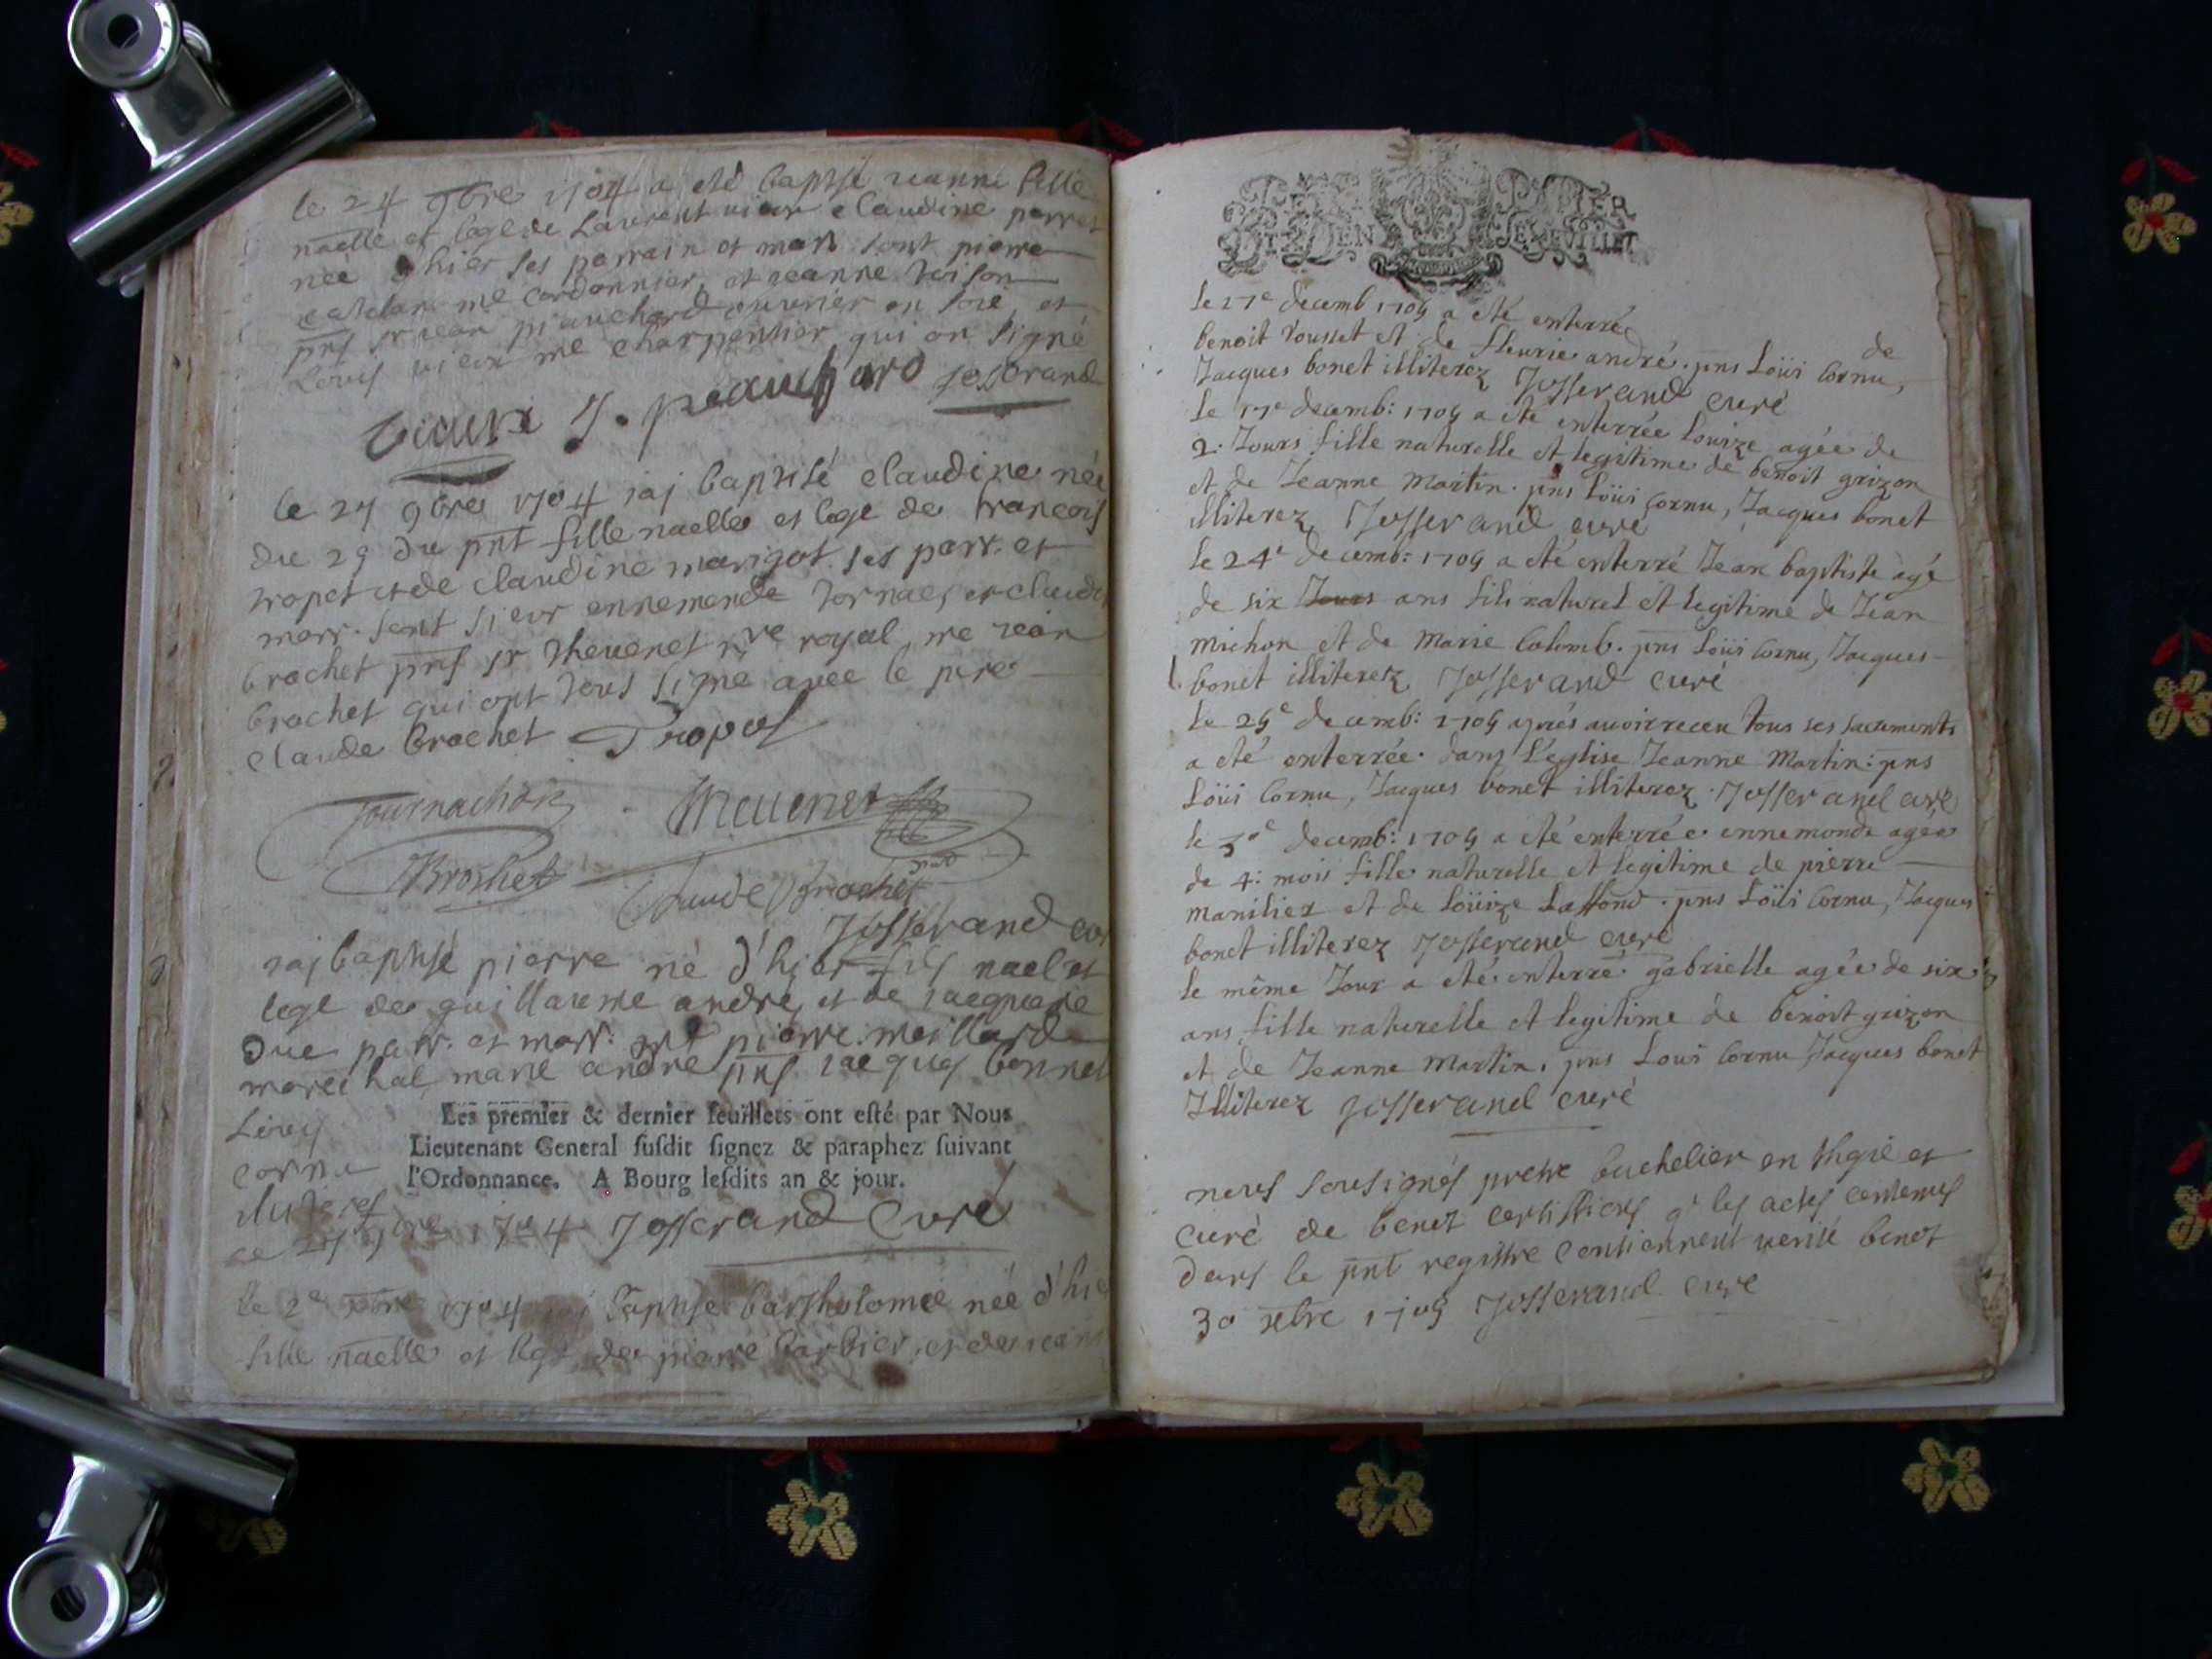 le 24 9bre 1704 a eté baptisé jeanne fille
naelle et lege de Laurent vieux claudine perret
née hier ses parrain et marr sont pierre
catelan me cordonnier, et jeanne
pnts sr jean piauchard ouvrier en soie, et
Louis vieux me charpentier qui on signé
vieux J. piauchard josserand
le 27 9bre 1704 iai baptisé claudine née
du 25 du pnt fille naelle et lege de francois
tropet et de claudine marigot. ses parr. et
marr. sont sieur ennemonde tornaes et claudi
brochet pnts sr thevenet nre royal, me jean
brochet qui ont tous signé avec le pere
claude brochet Tropet
Tournachon Thevenet
JBrochet Claude Brochet
Josserand cur
iai baptisé pierre né d'hier fils nael et
lege de guillaume andré et de jacqueme
due parr. et marr. sont pierre meillard
marechal, marie andré pnts jacques bonnet
Louis
cornu
illiteres
Les premier & dernier feuillets ont esté par Nous
Lieutenant General susdit signez & paraphez suivant
l'Ordonnance. A Bourg lesdits an & jour.
ce 27 9bre 1704 Josserand Curé
le 2e xbre 1704 iai baptisé bartholomée née d'hie
fille naelle et lege de pierre barbier, et de jean
PAPIER
DIX DEN
le 17e decemb 1709 a eté enterré
benoit rousset et de fleurie andré. pns Loüi Cornu, de
Jacques bonet illiterez Josserand curé
le 17e decemb: 1709 a eté enterrée louize agée de
2. Jours fille naturelle et legitime de benoit grizon
et de Jeanne Martin. pns Loüi Cornu, Jacques bonet
illiterez Josserand curé
le 24e decemb: 1709 a eté enterré Jean baptiste agé
de six Jours ans fils naturel et legitime de Jean
michon et de Marie Colomb. pns Loüi Cornu, Jacques
bonet illiterez Josserand curé
le 29e decemb: 1709 aprés avoir receu tous ses sacements
a eté enterrée dans l'eglise Jeanne Martin: pns
Loüi Cornu, Jacques bonet illiterez. Josserand curé
le 30e decemb: 1709 a eté enterrée ennemonde agée
de 4: mois fille naturelle et legitime de pierre
manilier et de Loüize Laffond. pns Loüi Cornu, Jacques
bonet illiterez Josserand curé
le même Jour a eté enterré gabrielle agée de six
ans fille naturelle et legitime de benoit grizon
et de Jeanne Martin. pns Loui Cornu Jacques bonet
Illiterez Josserand curé
nous sousignés pretre bachelier en thgie et
curé de benot certiffions q les actes contenus
dans le pnt registre contiennent verité benot
30 xbre 1709 Josserand curé